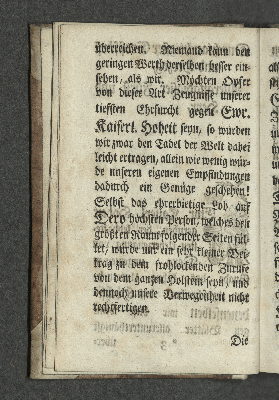 überreichen. Niemand kann den
geringen Werth derselben besser ein-
sehen, als wir. Möchten Opfer
von dieser Art Zeugnisse unserer
tiefsten Ehrfurcht gegen Ewr.
Kaiserl. Hoheit seyn, so würden
wir zwar den Tadel der Welt dabei
leicht ertragen, allein wie wenig wür-
de unseren eigenen Empfindungen
dadurch ein Genüge geschehen!
Selbst das ehrerbietige Lob auf
Dero höchsten Person, welches den
größten Raum folgender Seiten fül-
let, würde nur ein sehr kleiner Bei-
trag zu dem frohlockenden Zurufe
von dem ganzen Holstein seyn, und
dennoch unsere Verwegenheit nicht
rechtfertigen.
Die